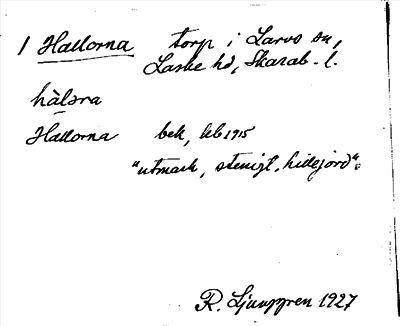 1 Hallorna torp i Larvs sn,
Laske hd, Skarab. l.
hàlɔra
Hallorna bek, leb 1915
"utmark, stenigt, hällejord".
R. Ljunggren 1927